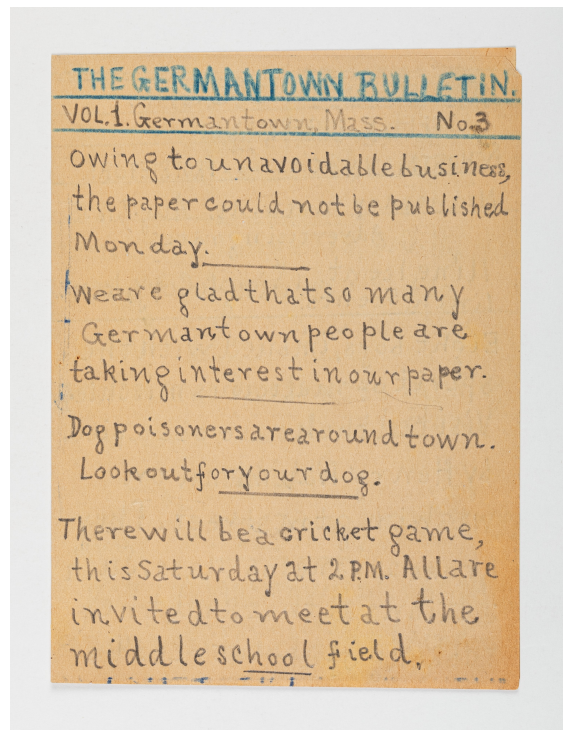 THE GERMANTOWN BULLETIN.
VOL.1. Germantown, Mass. No.3
Owing to unavoidable business,
the paper could not be published
Monday.
We are glad that so many
Germantown people are
taking interest in our paper.
Dog poisoners are around town.
Look out for your dog.
There will be a cricket game,
this Saturday at 2 P.M. All are
invited to meet at the
middle school field.